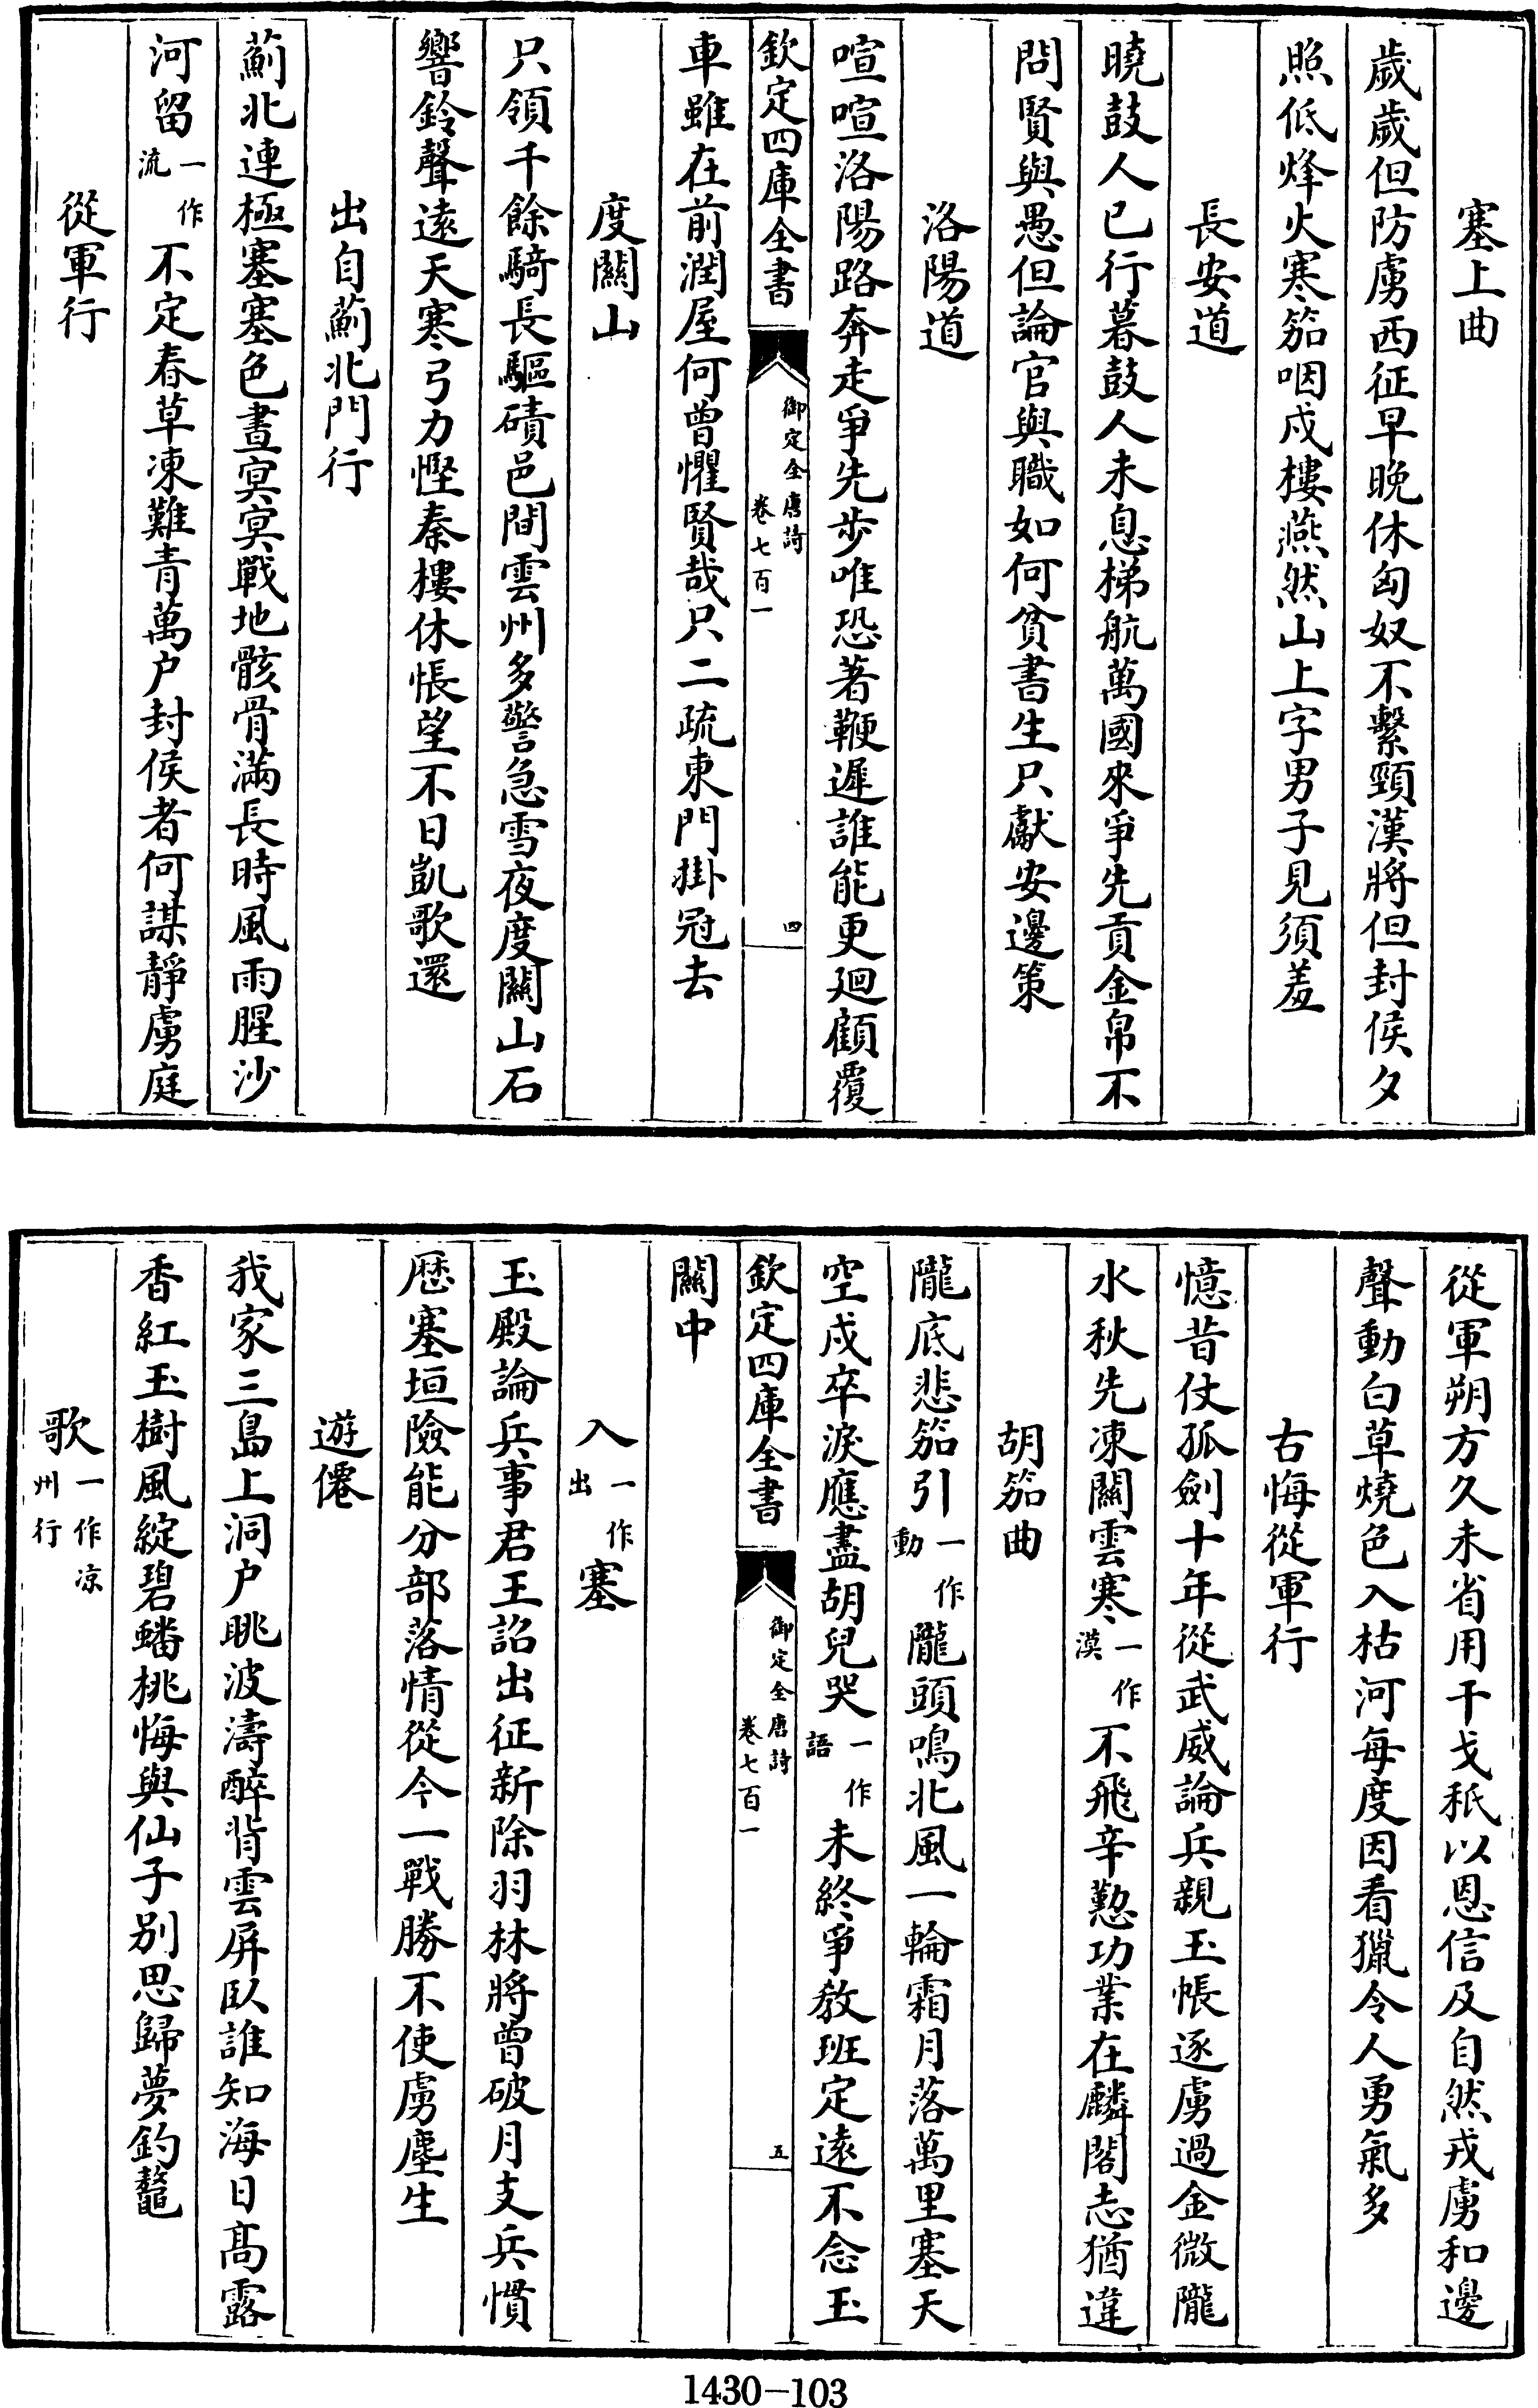 塞上曲
歲歲但防虜西征早晚休匈奴不繫頸漢將但封侯夕
照低烽火寒笳咽戍樓燕然山上字男子見須羞
長安道
曉鼓人已行暮鼓人未息梯航萬國來爭先貢金帛不
問賢與愚但論官與職如何貧書生只獻安邊策
洛陽道
喧喧洛陽路奔走爭先步唯恐著鞭遲誰能更廻顧覆
欽定四庫全書
御定全唐詩
卷七百一
四
車雖在前潤屋何曾懼賢哉只二疏東門掛冠去
度關山
只領千餘騎長驅磧邑間雲州多警急雪夜度關山石
響鈴聲遠天寒弓力慳秦樓休悵望不日凱歌還
出自薊北門行
薊北連極塞塞色晝冥冥戰地骸骨滿長時風雨腥沙
河留一作流不定春草凍難青萬户封侯者何謀靜虜庭
從軍行
從軍朔方久未省用干戈秖以恩信及自然戎虜和邊
聲動白草燒色入枯河每度因看獵令人勇氣多
古悔從軍行
憶昔仗孤劍十年從武威論兵親玉帳逐虜過金微隴
水秋先凍關雲寒一作漠不飛辛懃功業在麟閣志猶違
胡笳曲
隴底悲笳引一作動隴頭鳴北風一輪霜月落萬里塞天
空戍卒淚應盡胡兒哭一作語未終爭教班定遠不念玉
欽定四庫全書
御定全唐詩
卷七百一
五
關中
入一作出塞
玉殿論兵事君王詔出征新除羽林將曾破月支兵慣
歷塞垣險能分部落情從今一戰勝不使虜塵生
遊僊
我家三島上洞户眺波濤醉背雲屏臥誰知海日髙露
香紅玉樹風綻碧蟠桃悔與仙子别思歸夢釣鼇
歌一作凉州行
1430-103